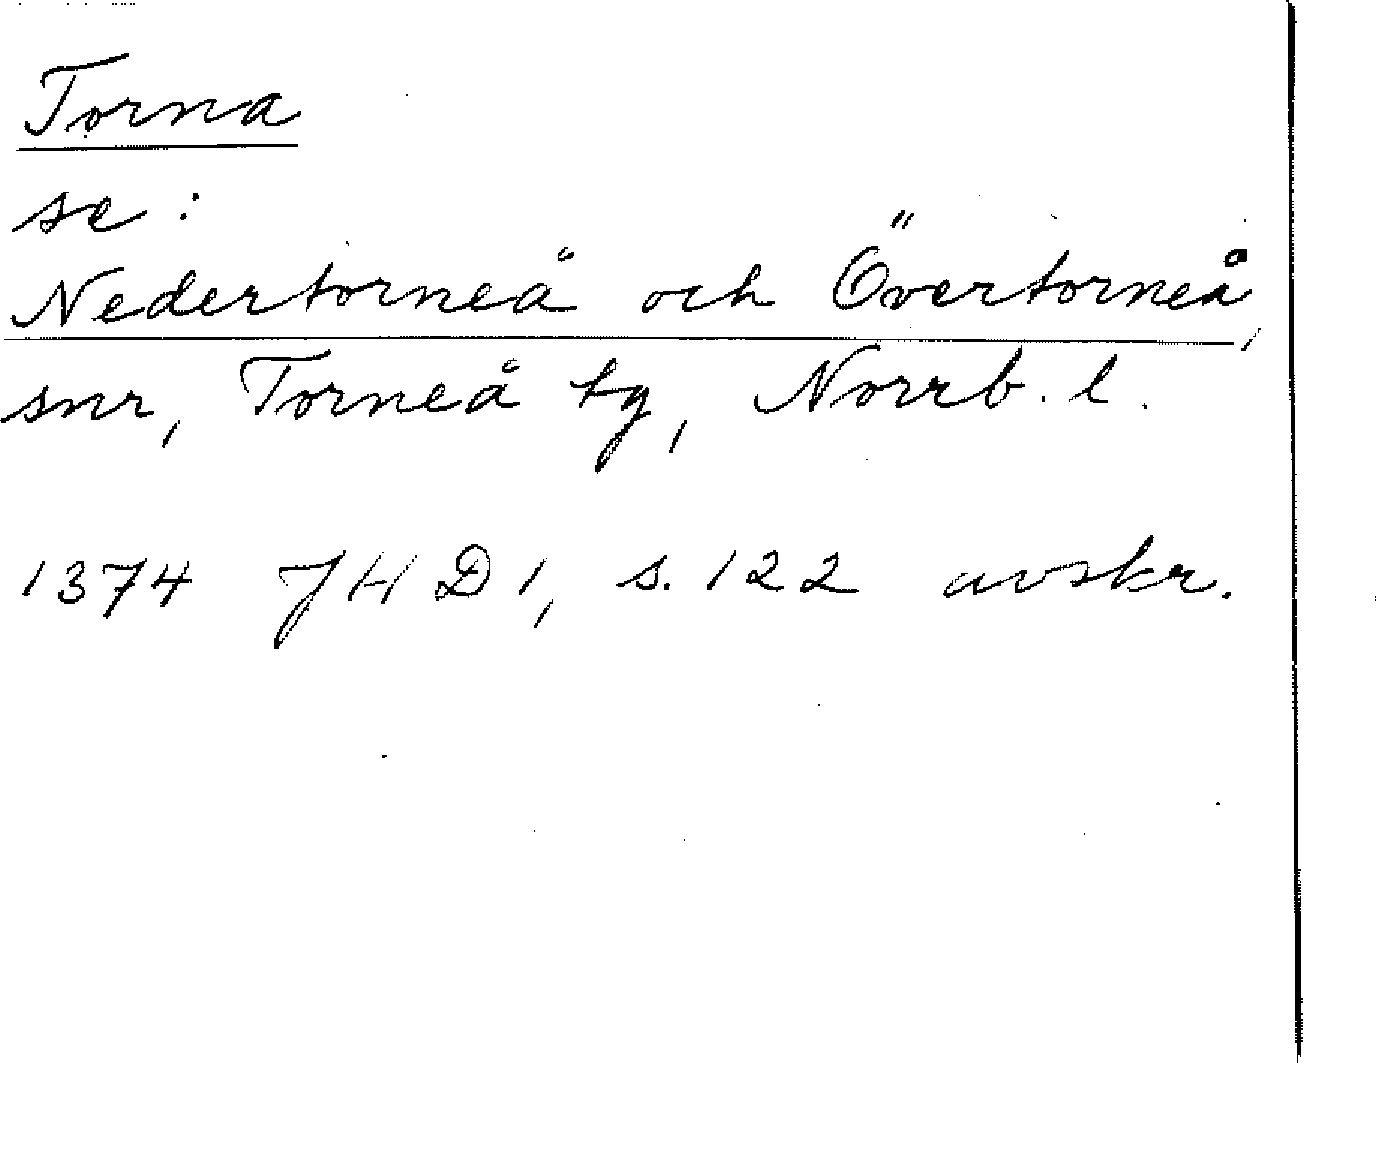 Torna
se:
Nedertorneå och Övertorneå,
snr, Torneå tg, Norrb. l.
1374 JHD 1, s. 122 avskr.